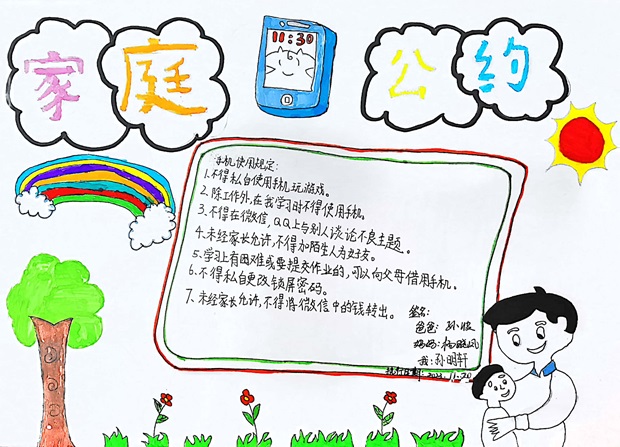 家庭公约
11:30
手机使用规定：
1.不得私自使用手机玩游戏。
2.除工作外，在我学习时不得使用手机。
3.不得在微信，QQ上与别人谈论不良主题。
4.未经家长允许，不得加陌生人为好友。
5.学习上有困难或要提交作业的，可以向父母借用手机。
6.不得私自更改锁屏密码。
7.未经家长允许，不得将微信中的钱转出。
签名：
爸爸：孙
妈妈：杨晓凤
我：孙明轩
11.20